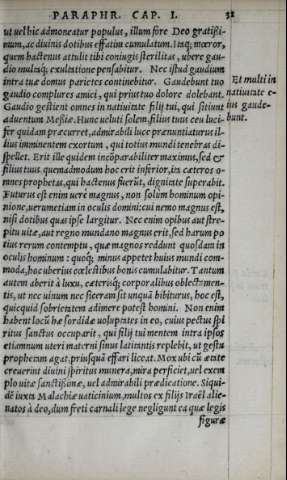 PARAPHR. CAP. I. 32
ut uel hic admoneatur populus, illum fore Deo gratißi-
mum, ac diuinis dotibus effatim cumulatum. Itaq; mœror,
quem hactenus attulit tibi coniugis sterilitas, ubere gau-
dio multaq; exultatione pensabitur. Nec istud gaudium
intra tuæ domus parietes continebitur. Gaudebunt tuo
gaudio complures amici, qui prius tuo dolore dolebant.
Gaudio gestient omnes in natiuitate filij tui, qui sitiunt
aduentum Meßiæ. Hunc ueluti solem, filius tuus ceu luci-
fer quidam præcurret, admirabili luce prænuntiaturus il-
lius imminentem exortum, qui totius mundi tenebras di-
spellet. Erit ille quidem incōparabiliter maximus, sed &
filius tuus, quemadmodum hoc erit inferior, ita cæteros o-
mnes prophetas, qui hactenus fuerūt, dignitate superabit.
Futurus est enim uere magnus, non solum hominum opi-
nione, uerumetiam in oculis domini: cui nemo magnus est,
nisi dotibus quas ipse largitur. Nec enim opibus aut stre-
pitu uitæ, aut regno mundano magnus erit, sed harum po
tius rerum contemptu, quæ magnos reddunt quosdam in
oculis hominum: quoq; minus appetet huius mundi com-
moda, hoc uberius cœlestibus bonis cumulabitur. Tantum
autem aberit à luxu, cæterisq; corporalibus oblectamen-
tis, ut nec uinum nec siceram sit unquā bibiturus, hoc est,
quicquid sobrietatem adimere potest homini. Non enim
habent locū hæ sordidæ uoluptates in eo, cuius pectus spi
ritus sanctus occuparit, qui filij tui mentem intra ipsos
etiamnum uteri materni sinus latitantis replebit, ut gestu
prophetam agat, priusquā effari liceat. Mox ubi cū ætate
creuerint diuini spiritus munera, mira perficiet, uel exem
plo uitæ sanctißimæ, uel admirabili prædicatione. Siqui-
dē iuxta Malachiæ uaticinium, multos ex filijs Israël alie-
natos à deo, dum freti carnali lege negligunt ea quæ legis
figuræ
Et multi in
natiuitate e-
ius gaude-
bunt.